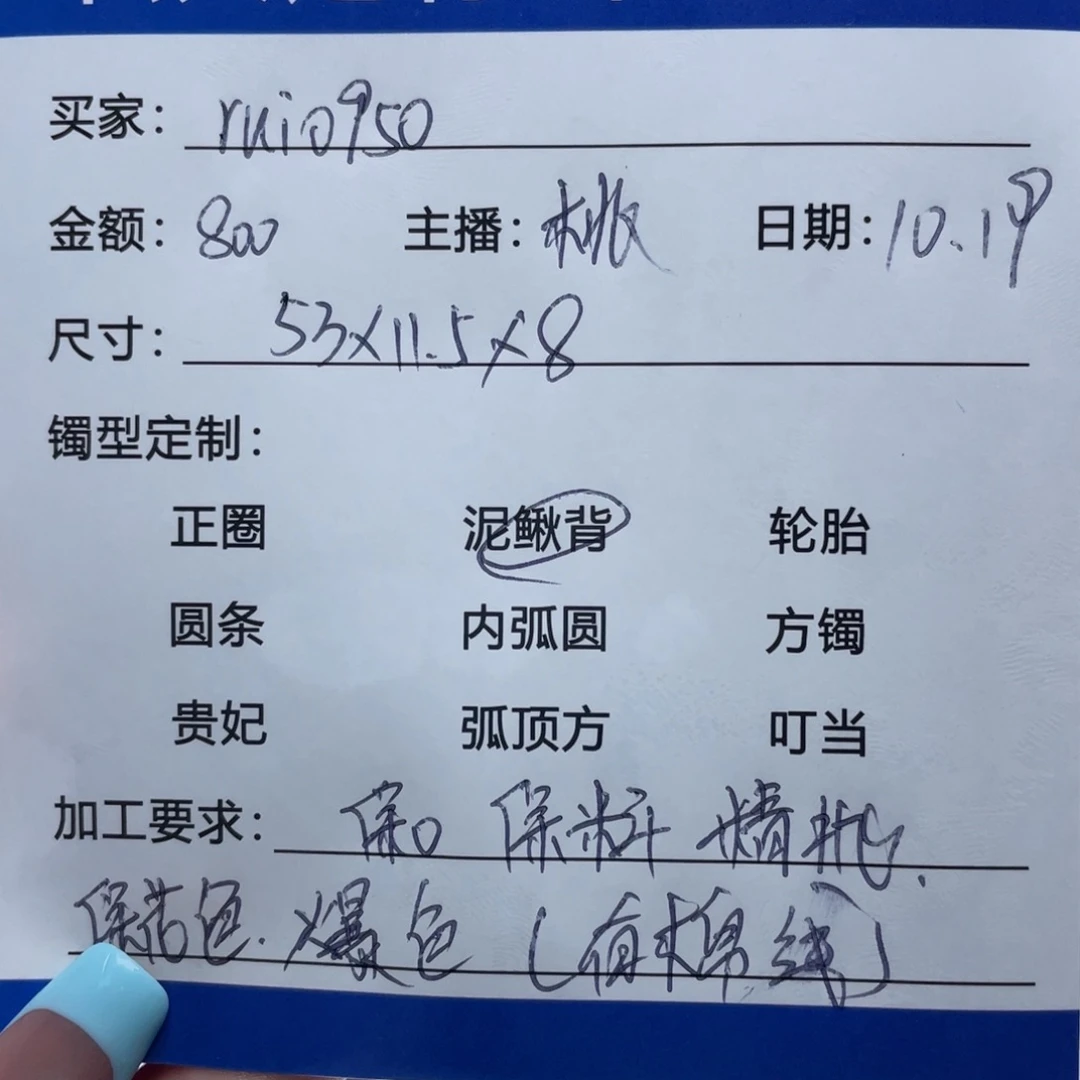 买家: ruio950
金额: 800 主播: 桃 日期: 10.19
尺寸: 53×11.5×8
镯型定制:
正圈 泥鳅背 轮胎
圆条 内弧圆 方镯
贵妃 弧顶方 叮当
加工要求: 保口 保料
爆色 (有棉线)